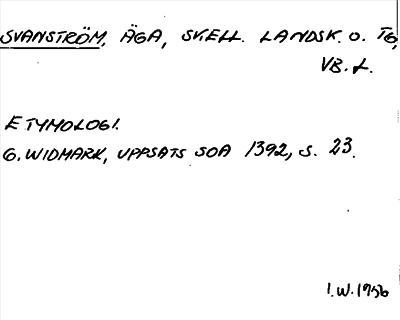 SVANSTRÖM, ÄGA, SKELL. LANDSK. O. TG,
VB. L.
ETYMOLOGI.
G. WIDMARK, UPPSATS SOA 1392, S. 23.
I.W. 1956